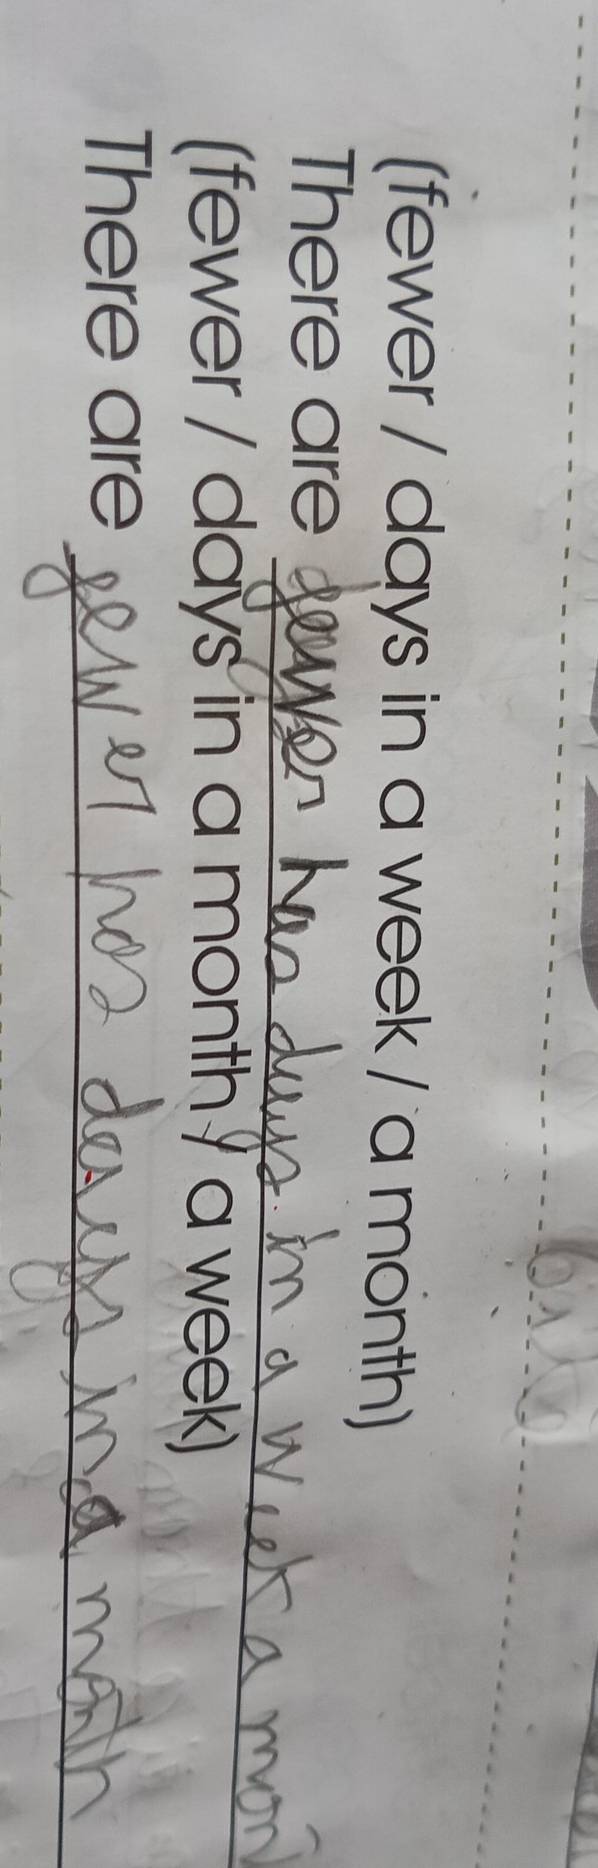 (fewer / days in a week / a month)
There are fewer has days in a week a mon
(fewer / days in a month / a week)
There are fewer has days in a month